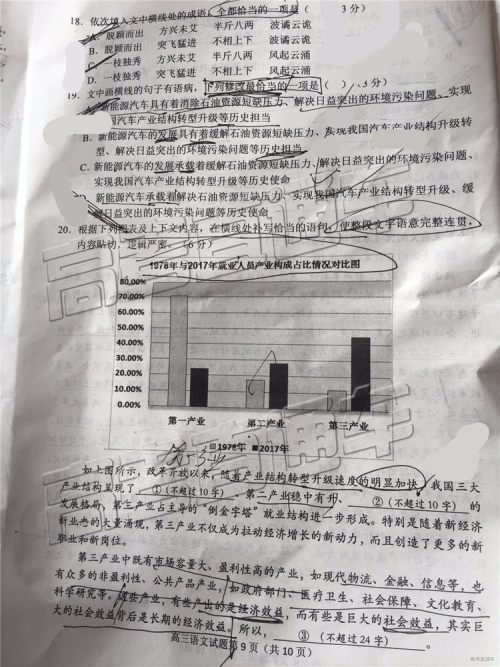 18. 依次填入文中横线处的成语，全都恰当的一项是（ 3分）
A. 脱颖而出 方兴未艾 半斤八两 波谲云诡
B. 脱颖而出 突飞猛进 不相上下 风起云涌
C. 一枝独秀 方兴未艾 半斤八两 风起云涌
D. 一枝独秀 突飞猛进 不相上下 波谲云诡
19. 文中画横线的句子有语病，下列修改最恰当的一项是（ ）（3分）
新能源汽车具有着消除石油资源短缺压力、解决日益突出的环境污染问题、实现
我国汽车产业结构转型升级等历史担当
B. 新能源汽车的发展具有着缓解石油资源短缺压力、实现我国汽车产业结构升级转
型、解决日益突出的环境污染问题等历史担当
C. 新能源汽车的发展承载着缓解石油资源短缺压力、解决日益突出的环境污染问题、
实现我国汽车产业结构转型升级等历史使命
新能源汽车承载着解决石油资源短缺压力、实现我国汽车产业结构转型升级、缓
解日益突出的环境污染问题等历史使命
20. 根据下列图表及上下文内容，在横线处补写恰当的语句，使整段文字语意完整连贯，
内容贴切，逻辑严密。（6分）
1978年与2017年就业人员产业构成占比情况对比图
80.00%
70.00%
60.00%
50.00%
40.00%
30.00%
20.00%
10.00%
0.00%
第一产业 第二产业 第三产业
1978年 2017年
如上图所示，改革开放以来，随着产业结构转型升级速度的明显加快，我国三大
产业结构呈现了 ①（不超过10字）、第二产业稳中有升、 ②（不超过10字） 的
发展格局，第三产业占主导的“倒金字塔”就业结构进一步形成。特别是随着新经济
新业态的大量涌现，第三产业不仅成为拉动经济增长的新动力，而且创造了更多的新
职业和新岗位。
第三产业中既有市场容量大、盈利性高的产业，如现代物流、金融、信息等，也
有众多的非盈利性、公共产品产业，如政府部门、医疗卫生、社会保障、文化教育、
科学研究等。这些产业，有些产出的是经济效益，而有些是巨大的社会效益，其实巨
大的社会效益背后是长期的经济效益。所以， ③（不超过24字） 。
高三语文试题第9页（共10页）
高考直通车
高考直通车